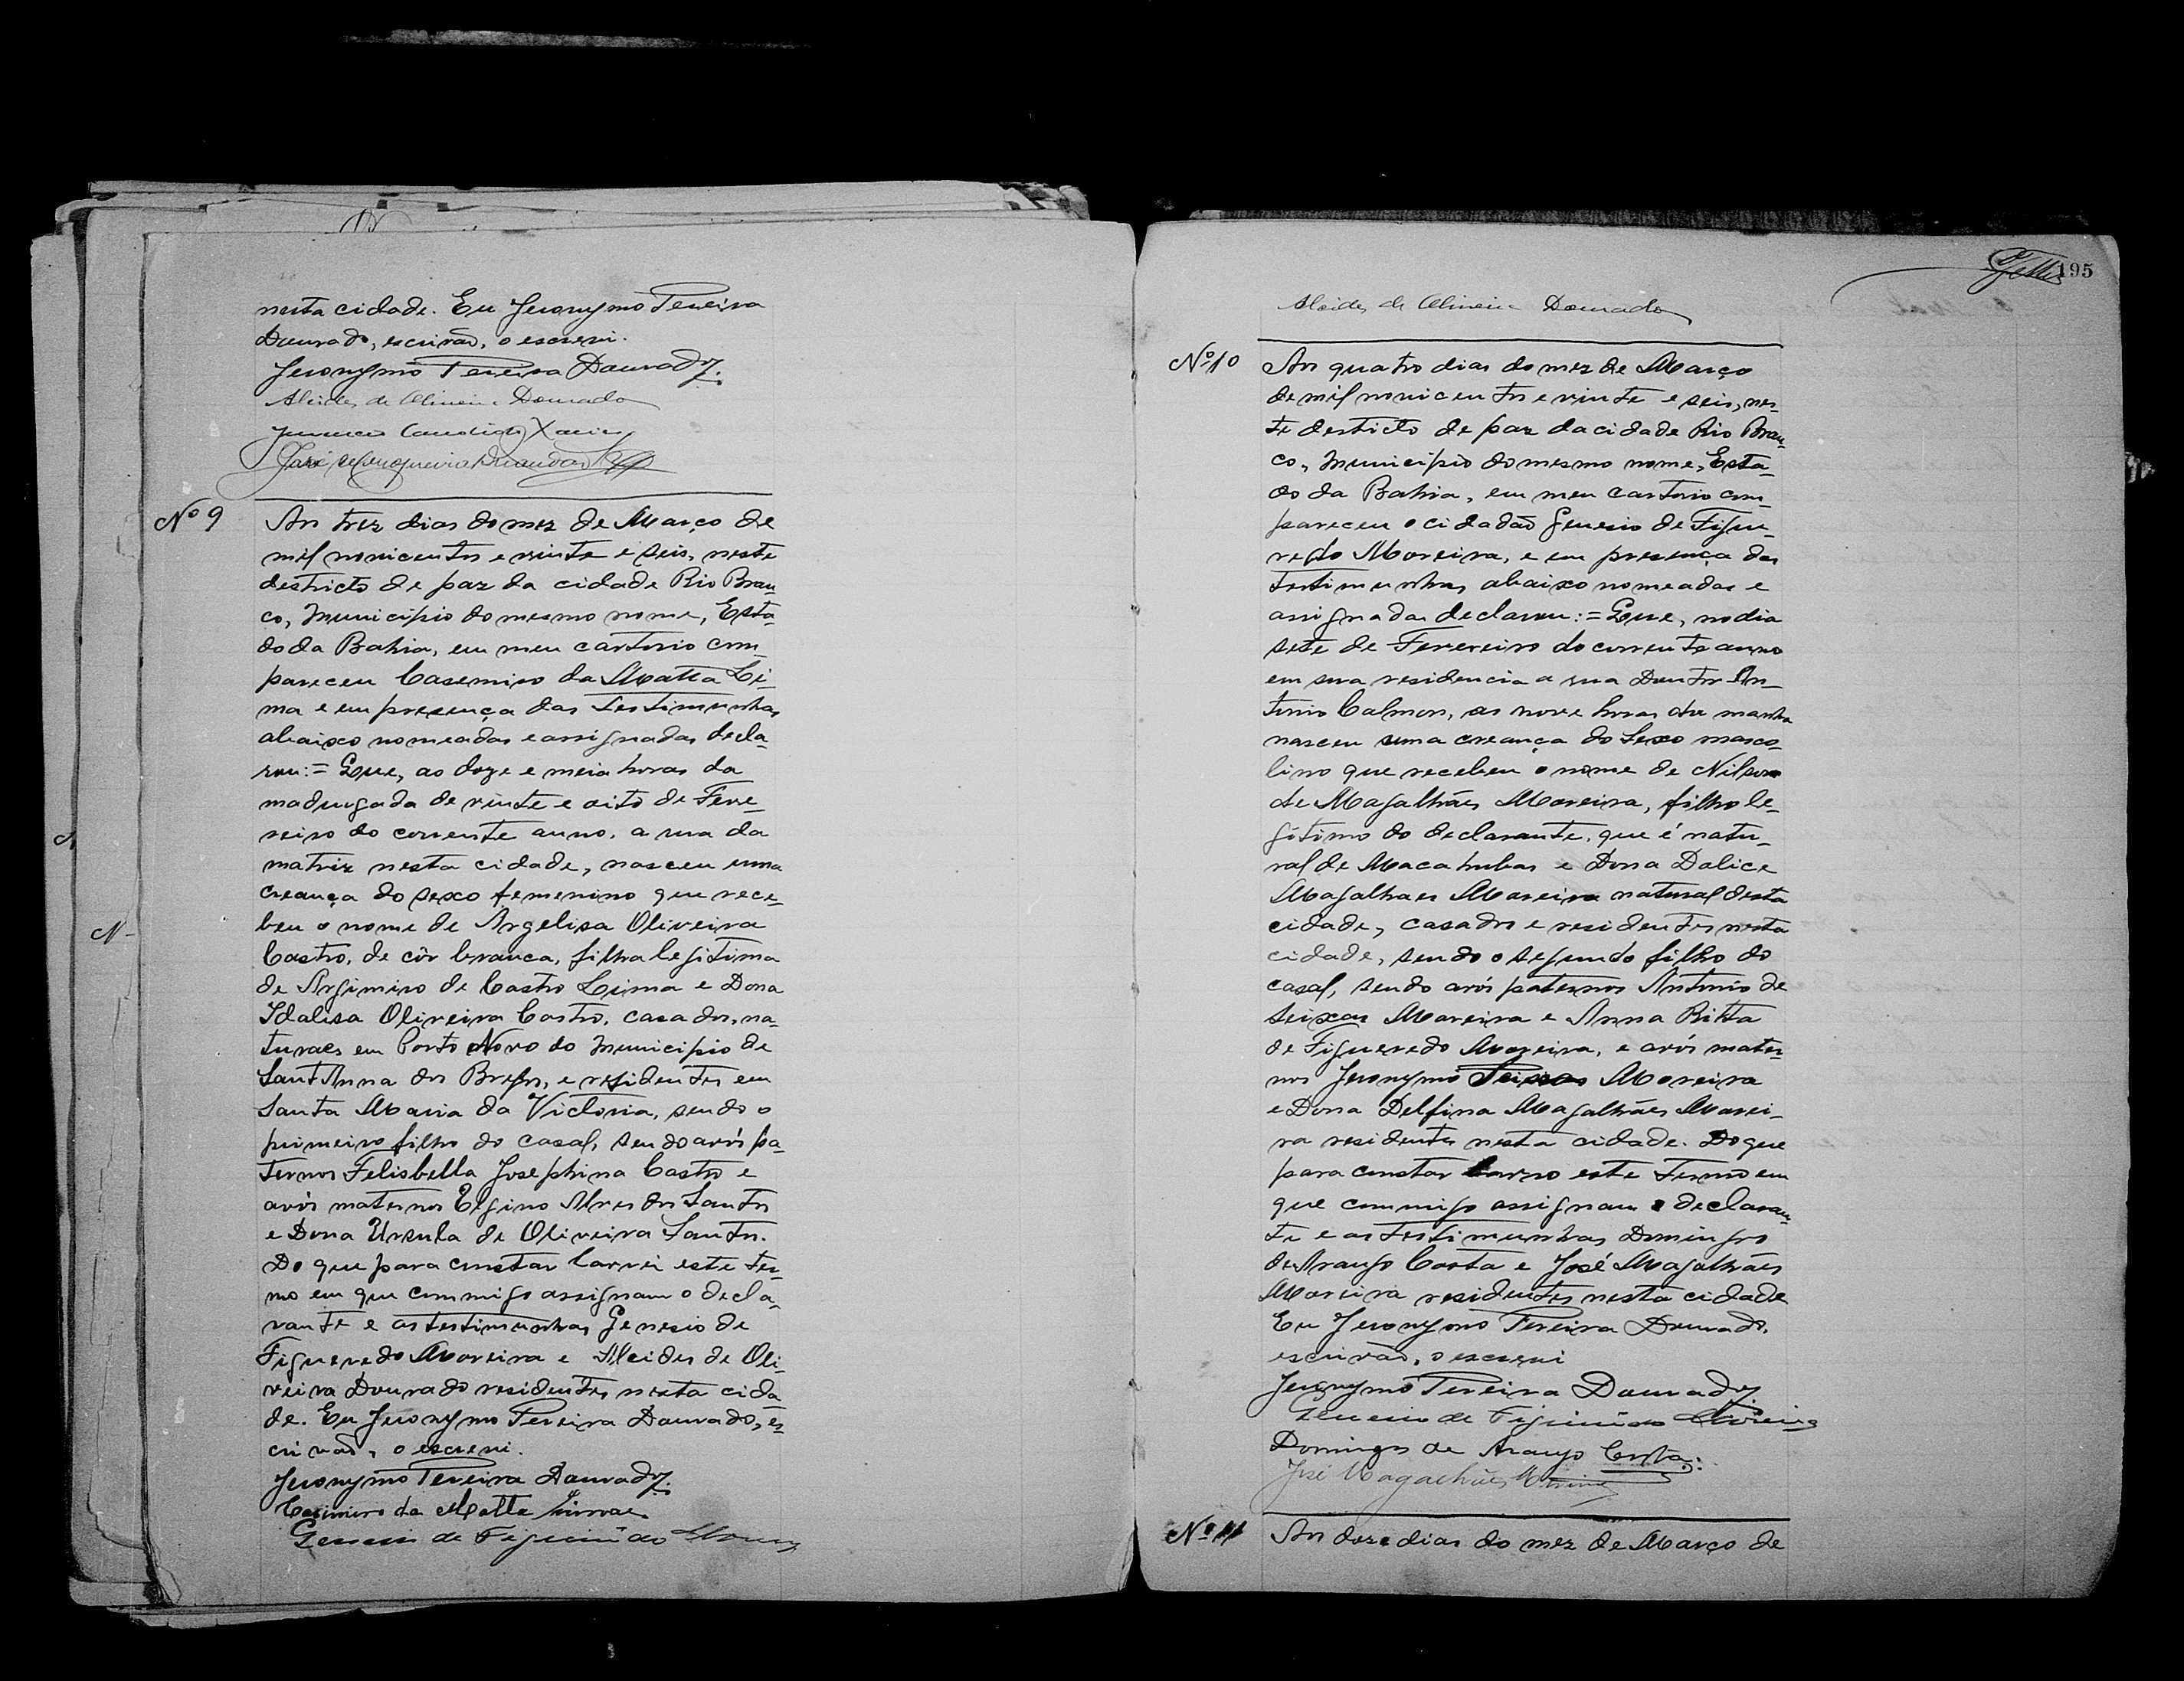 nesta cidade. Eu Jeronymo Pereira
Dourado, escrivão, o escrevi.
Jeronymo Pereira Dourado.
Alcides de Oliveira Dourado
Candido Xavier
José
Nº 9
Aos trez dias do mez de Março de
mil novicentos e vinte e seis, neste
destricto de paz da cidade Rio Bran-
co, Municipio do mesmo nome, Esta-
do da Bahia, em meu cartorio com-
pareceu Casemiro da Matta Li-
ma e em presença das testimunhas
abaixo nomeadas e assignadas decla-
rou:= Que, as doze e meia horas da
madrugada de vinte e oito de Feve-
reiro do corrente anno, a rua da
matriz nesta cidade, nasceu uma
creança do sexo femenino que rece-
beu o nome de Argelisa Oliveira
Castro, de côr branca, filha legitima
de Argimiro de Castro Lima e Dona
Idalisa Oliveira Castro, casados, na-
turaes em Porto Novo do Municipio de
Sant'Anna dos Brejos, e residentes em
Santa Maria da Victoria, sendo o
primeiro filho do casal, sendo avós pa-
ternos Felisbella Josephina Castro e
avós maternos Elgino Alves dos Santos
e Dona Ursula de Oliveira Santos.
Do que para constar lavrei este ter-
mo em que commigo assignam o decla-
rante e as testimunhas Genesio de
Figueredo Moreira e Alcides de Oli-
veira Dourado residentes nesta cida-
de. Eu Jeronymo Pereira Dourado, es-
crivão, o escrevi.
Jeronymo Pereira Dourado.
Casimiro da Matta Lima
Genesio de Figueirêdo Moreira
195
Alcides de Oliveira Dourado
Nº 10
Aos quatro dias do mez de Março
de mil novicentos e vinte e seis, nes-
te destricto de paz da cidade Rio Bran-
co, Municipio do mesmo nome, Esta-
do da Bahia, em meu cartorio com-
pareceu o cidadão Genesio de Figue-
redo Moreira, e em presença das
testimunhas abaixo nomeadas e
assignadas declarou:= Que, no dia
sete de Fevereiro do corrente anno
em sua residencia a rua Doutor An-
tonio Calmon, as nove horas da manha
nasceu uma creança do sexo masco-
lino que recebeu o nome de Nilson
de Magalhães Moreira, filho le-
gitimo do declarante, que é natu-
ral de Macahubas e Dona Dalice
Magalhaes Moreira natural desta
cidade, casados e residentes nesta
cidade, sendo o segundo filho do
casal, sendo avós paternos Antonio de
Seixas Moreira e Anna Ritta
de Figueredo Moreira, e avós mater-
nos Jeronymo Moreira
e Dona Delfina Magalhães Morei-
ra residentes nesta cidade. Do que
para constar lavro este termo em
que commigo assignam o declaran-
te e as testimunhas Domingos
de Araujo Costa e José Magalhães
Moreira residentes nesta cidade
Eu Jeronymo Pereira Dourado,
escrivão, o escrevi
Jeronymo Pereira Dourado
Genesio de Figueirêdo Moreira
Domingos de Araujo Costa:
José Magalhães Moreira
Nº 11
Aos doze dias do mez de Março de